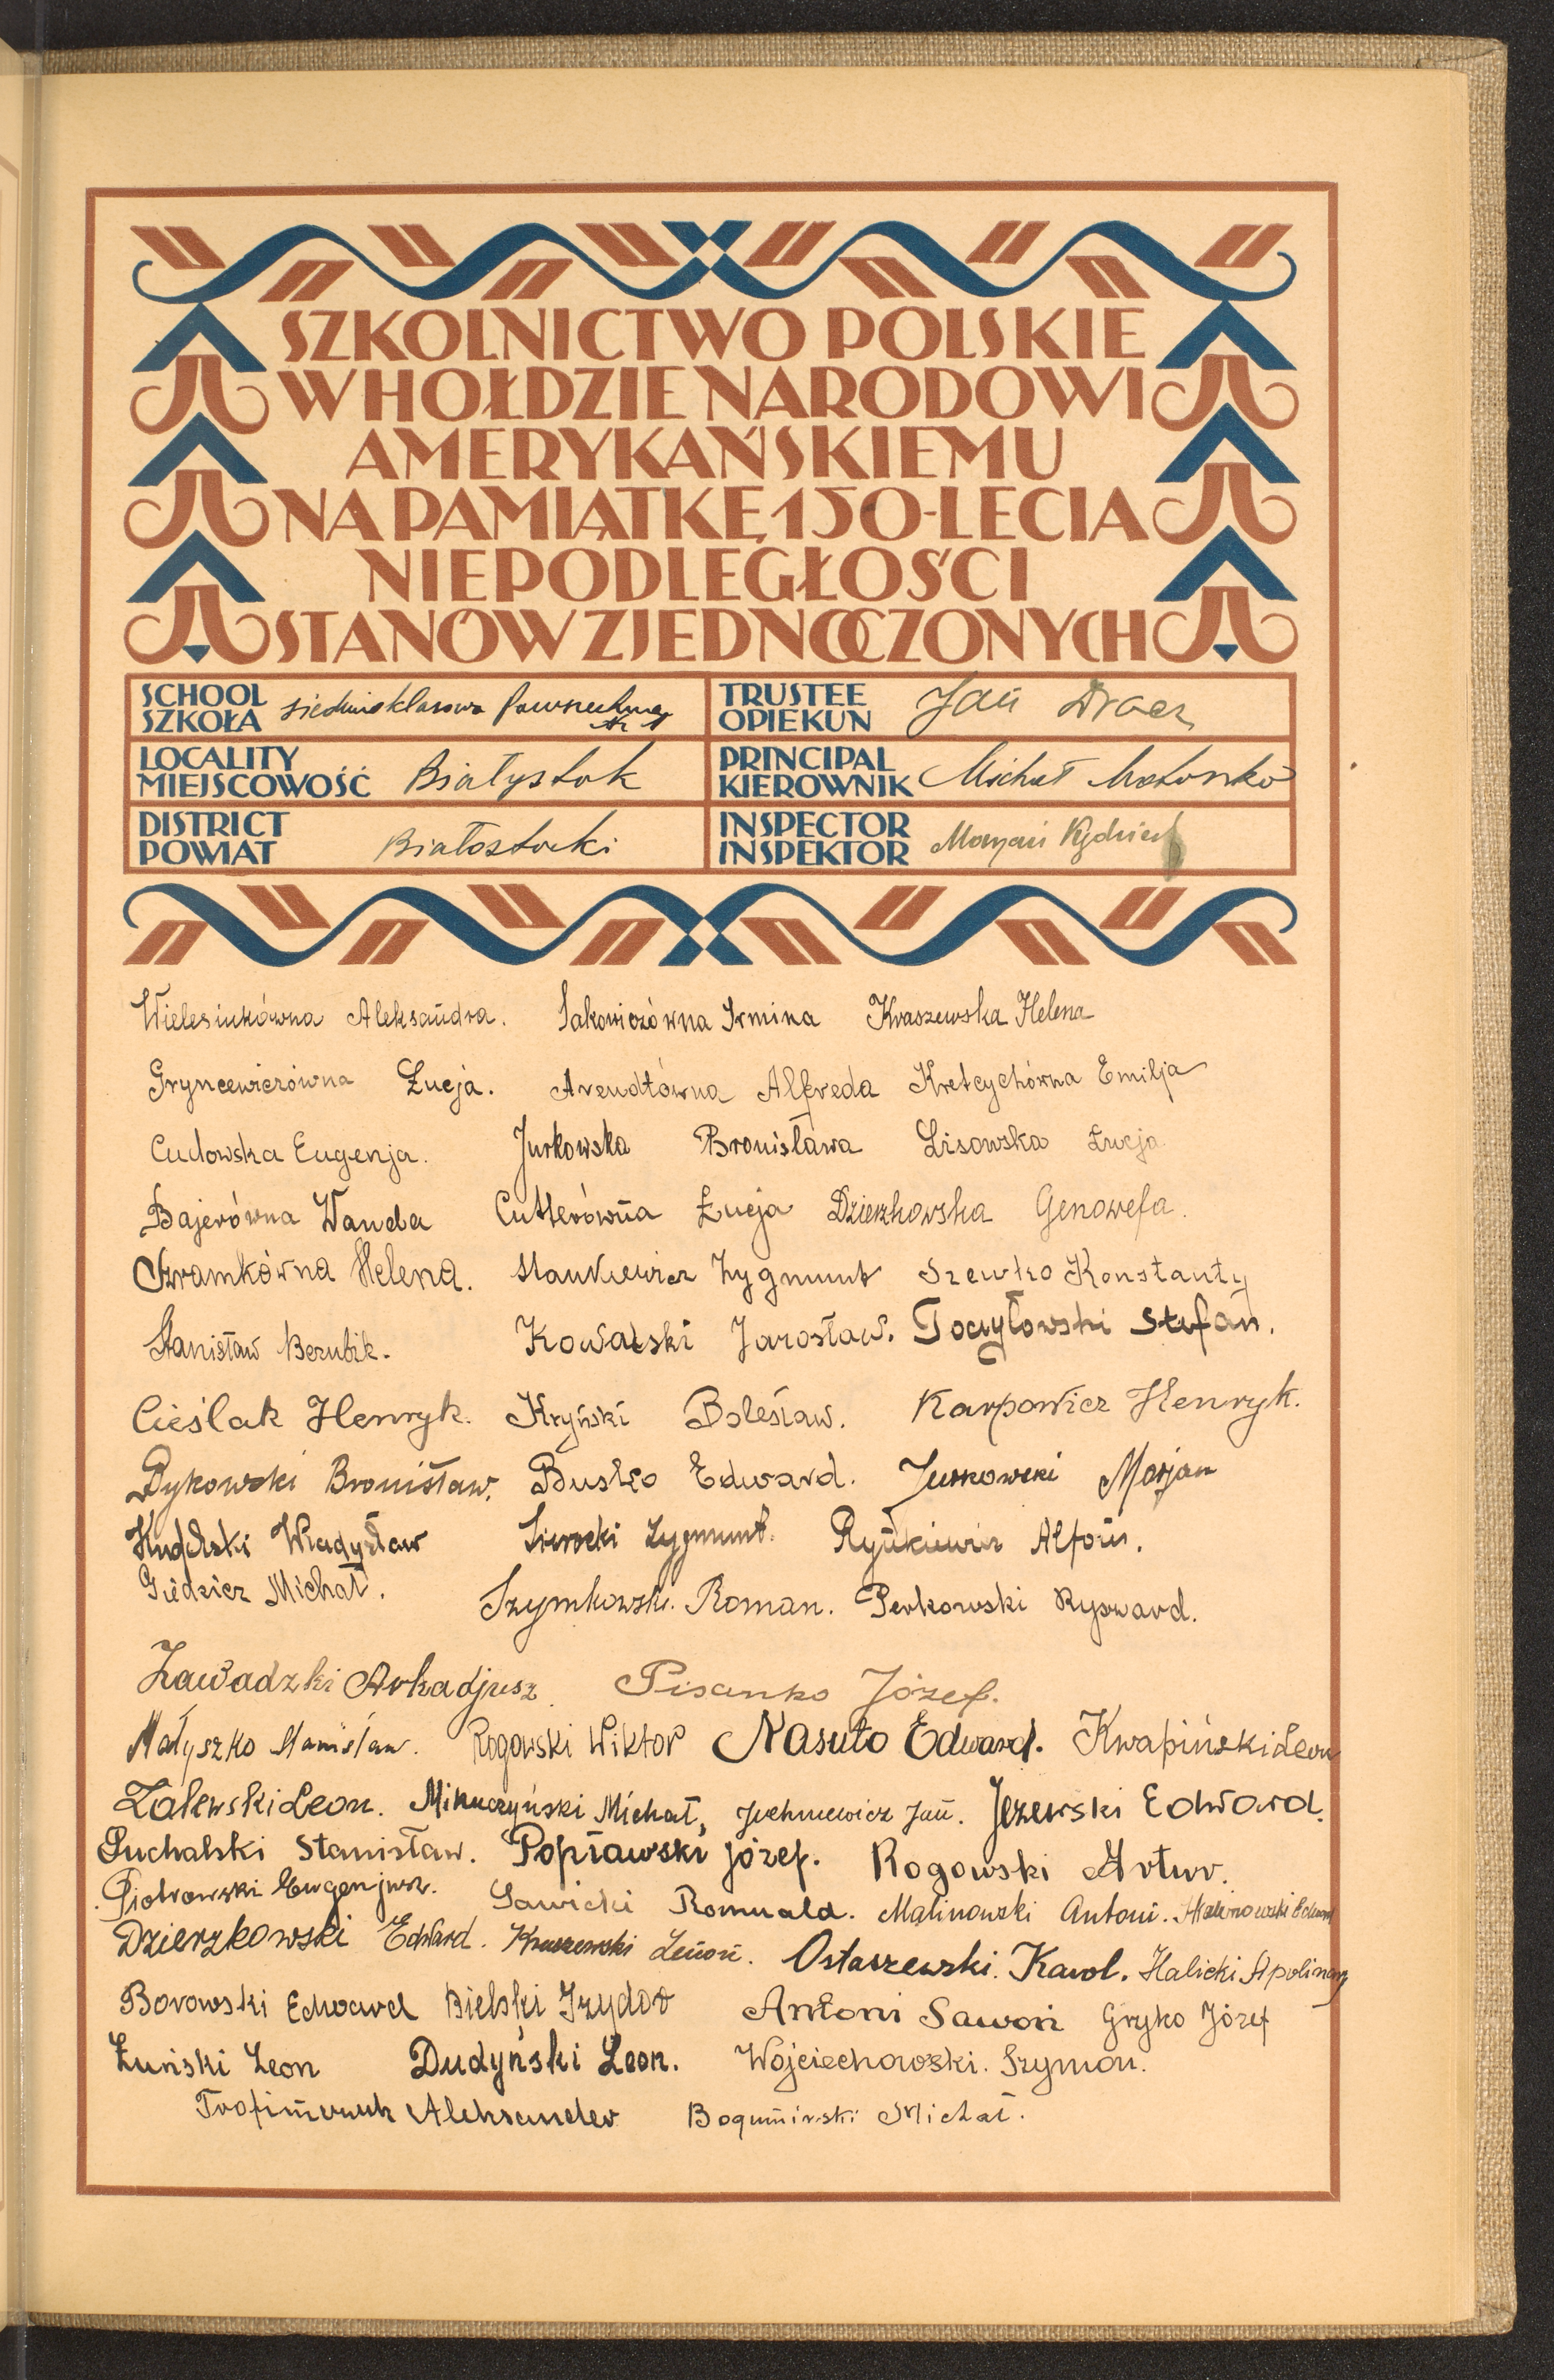 SZKOLNICTWO POLSKIE
W HOŁDZIE NARODOWI
AMERYKAŃSKIEMU
NA PAMIĄTKĘ 150-LECIA
NIEPODLEGŁOŚCI
STANÓW ZJEDNOCZONYCH
SCHOOL SZKOŁA siedmioklasowa Powszechna
TRUSTEE OPIEKUN Jan
LOCALITY MIEJSCOWOŚĆ Białystok
PRINCIPAL KIEROWNIK Michał Motoszko
DISTRICT POWIAT Białostocki
INSPECTOR INSPEKTOR Maryan
Wielesiukówna Aleksandra. Sakowiczówna Irmina Kraszewska Helena
Gryncewiczówna Łucja. Arendtówna Alfreda Kretcychówna Emilja
Cudowska Eugenja. Jurkowska Bronisława Lisowska Łucja
Bajerówna Wanda Cutlerówna Łucja Dzierzkowska Genowefa.
Szramkówna Helena. Stankiewicz Zygmunt Szewko Konstanty
Stanisław Bezubik. Kowalski Jarosław. Toczyłowski Stefan.
Cieślak Henryk. Kryński Bolesław. Karpowicz Henryk.
Dykowski Bronisław. Busko Edward. Jurkowski Marjan
Władysław Sierocki Zygmunt. Rynkiewicz Alfons.
Giedzicz Michał. Szymkowski Roman. Perkowski Ryszard.
Zawadzki Arkadjusz. Pisanko Józef.
Małyszko Stanisław. Rogowski Wiktor Nasuto Edward. Kwapiński Leon
Zalewski Leon. Mikuczyński Michał, Juchniewicz Jan. Jeżewski Edward.
Suchalski Stanisław. Popławski Józef. Rogowski Artur.
Piotrowski Eugenjusz. Sawicki Romuald. Malinowski Antoni. Halinowski Edward
Dzierzkowski Edward. Kraszewski Zenon. Ostaszewski Karol. Halicki Apolinary
Borowski Edward Bielski Izydor Antoni Sawoń Gryko Józef
Łuński Leon Dudyński Leon. Wojciechowski. Szymon.
Trofimczuk Aleksander Bogumirski Michał.